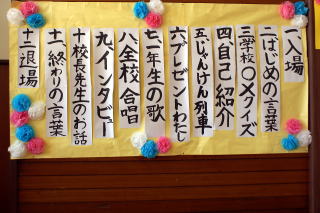 一、入場
二、はじめの言葉
三、学校〇×クイズ
四、自己紹介
五、じゃんけん列車
六、プレゼントわたし
七、一年生の歌
八、全校合唱
九、インタビュー
十、校長先生のお話
十一、終わりの言葉
十二、退場